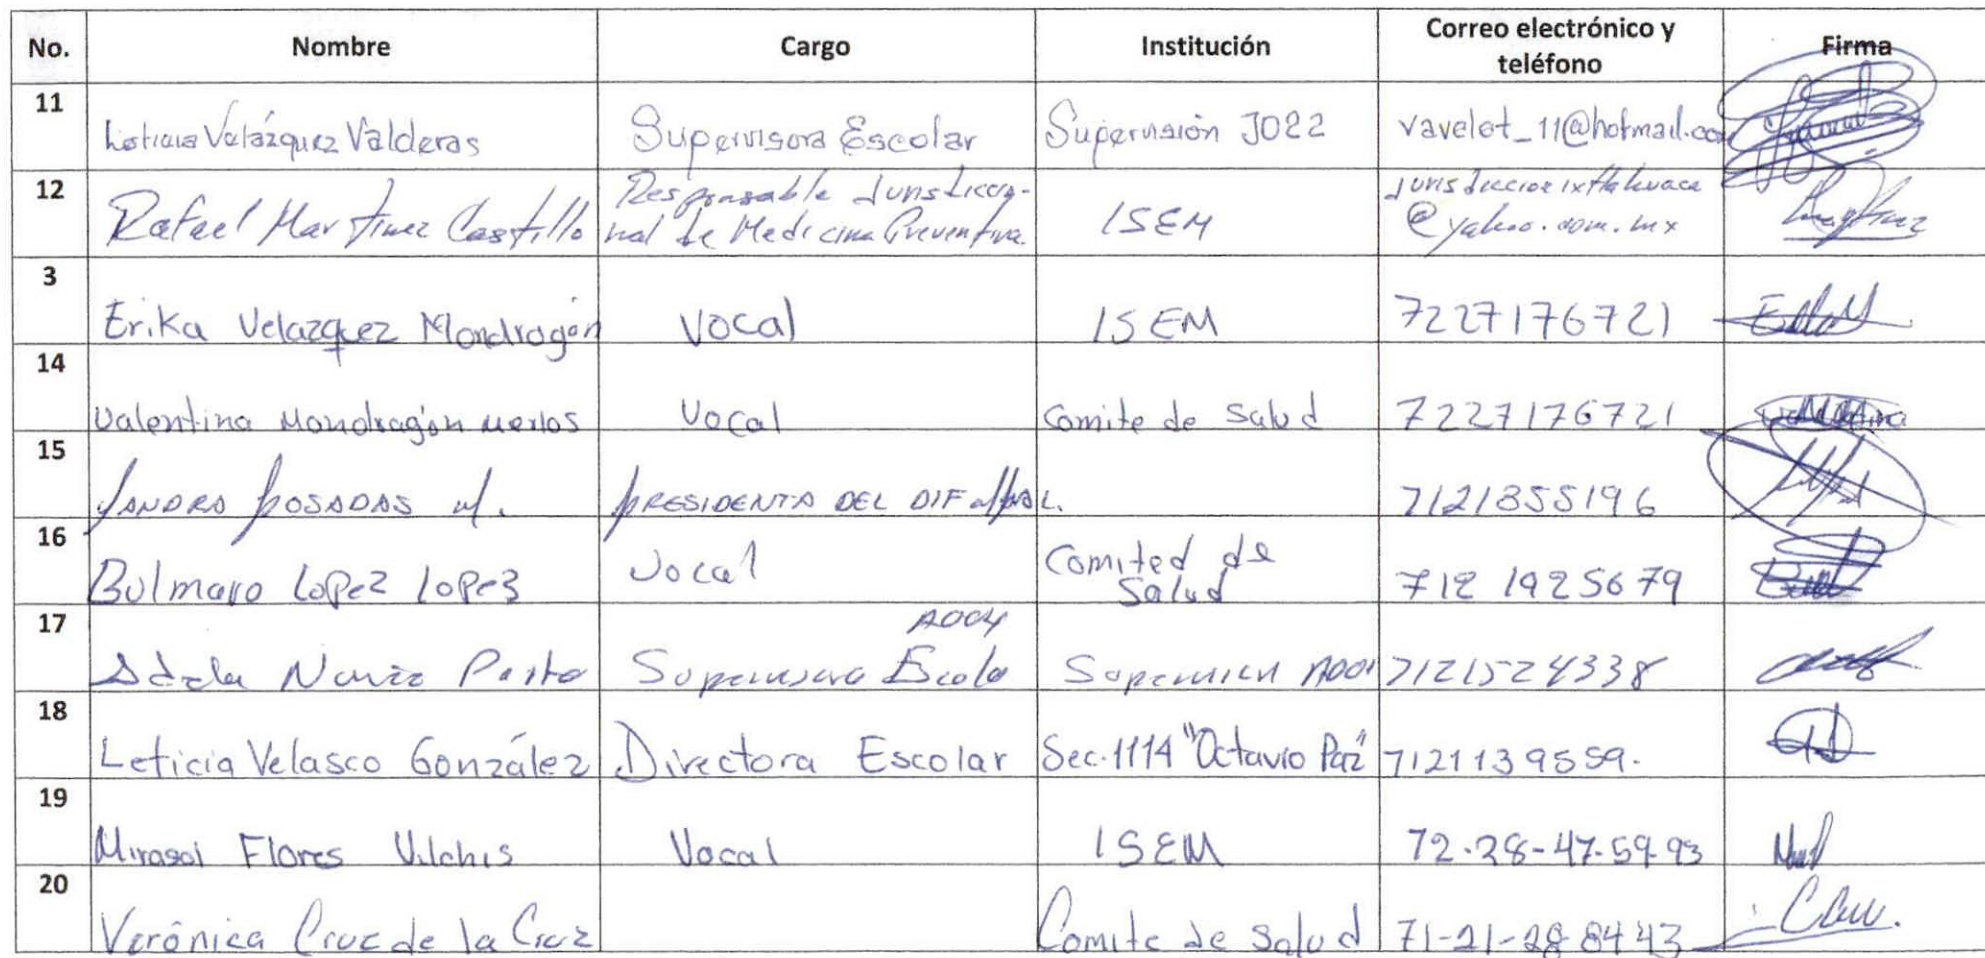 No. Nombre Cargo Institución Correo electrónico y teléfono Firma
11 Leticia Velázquez Valderas Supervisora Escolar Supervisión J022 vavelet_11@hotmail.com
12 Rafael Martinez Castillo Responsable Jurisdiccional de Medicina Preventiva. ISEM jurisdiccionixtlahuaca @yahoo.com.mx
3 Erika Velazquez Mondragón Vocal ISEM 7227176721
14 Valentina Mondragón Merlos Vocal Comite de Salud 7227176721 Valentina
15 SANDRA POSADAS M. PRESIDENTA DEL DIF MPAL. 7121355196
16 Bulmaro Lopez Lopez Vocal Comited de Salud 712 1925679
17 Adela Supervisora Escola A004 Supervision 7121524338
18 Leticia Velasco González Directora Escolar Sec. 1114 "Octavio Paz" 7121139559.
19 Mirasol Flores Vilchis Vocal ISEM 72-28-47-59-93
20 Verónica Cruz de la Cruz Comite de Salud 71-21-28 84 43